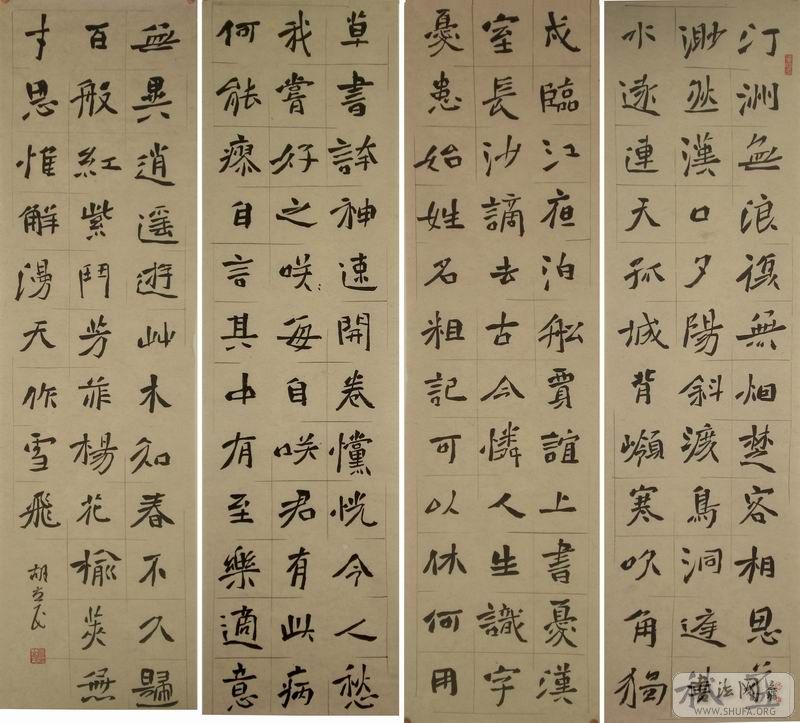 汀洲無浪復無烟楚客相思益
渺然漢口夕陽斜渡鳥洞庭秋
水遠連天孤城背嶺寒吹角獨
戍臨江夜泊船賈誼上書憂漢
室長沙謫去古今憐人生識字
憂患始姓名粗記可以休何用
草書誇神速開卷戃怳令人愁
我嘗好之咲每自咲君有此病
何能瘳自言其中有至樂適意
無異逍遥遊艸木知春不久歸
百般紅紫鬥芳菲楊花榆莢無
才思惟解漫天作雪飛
胡
書法网
WWW.SHUFA.ORG